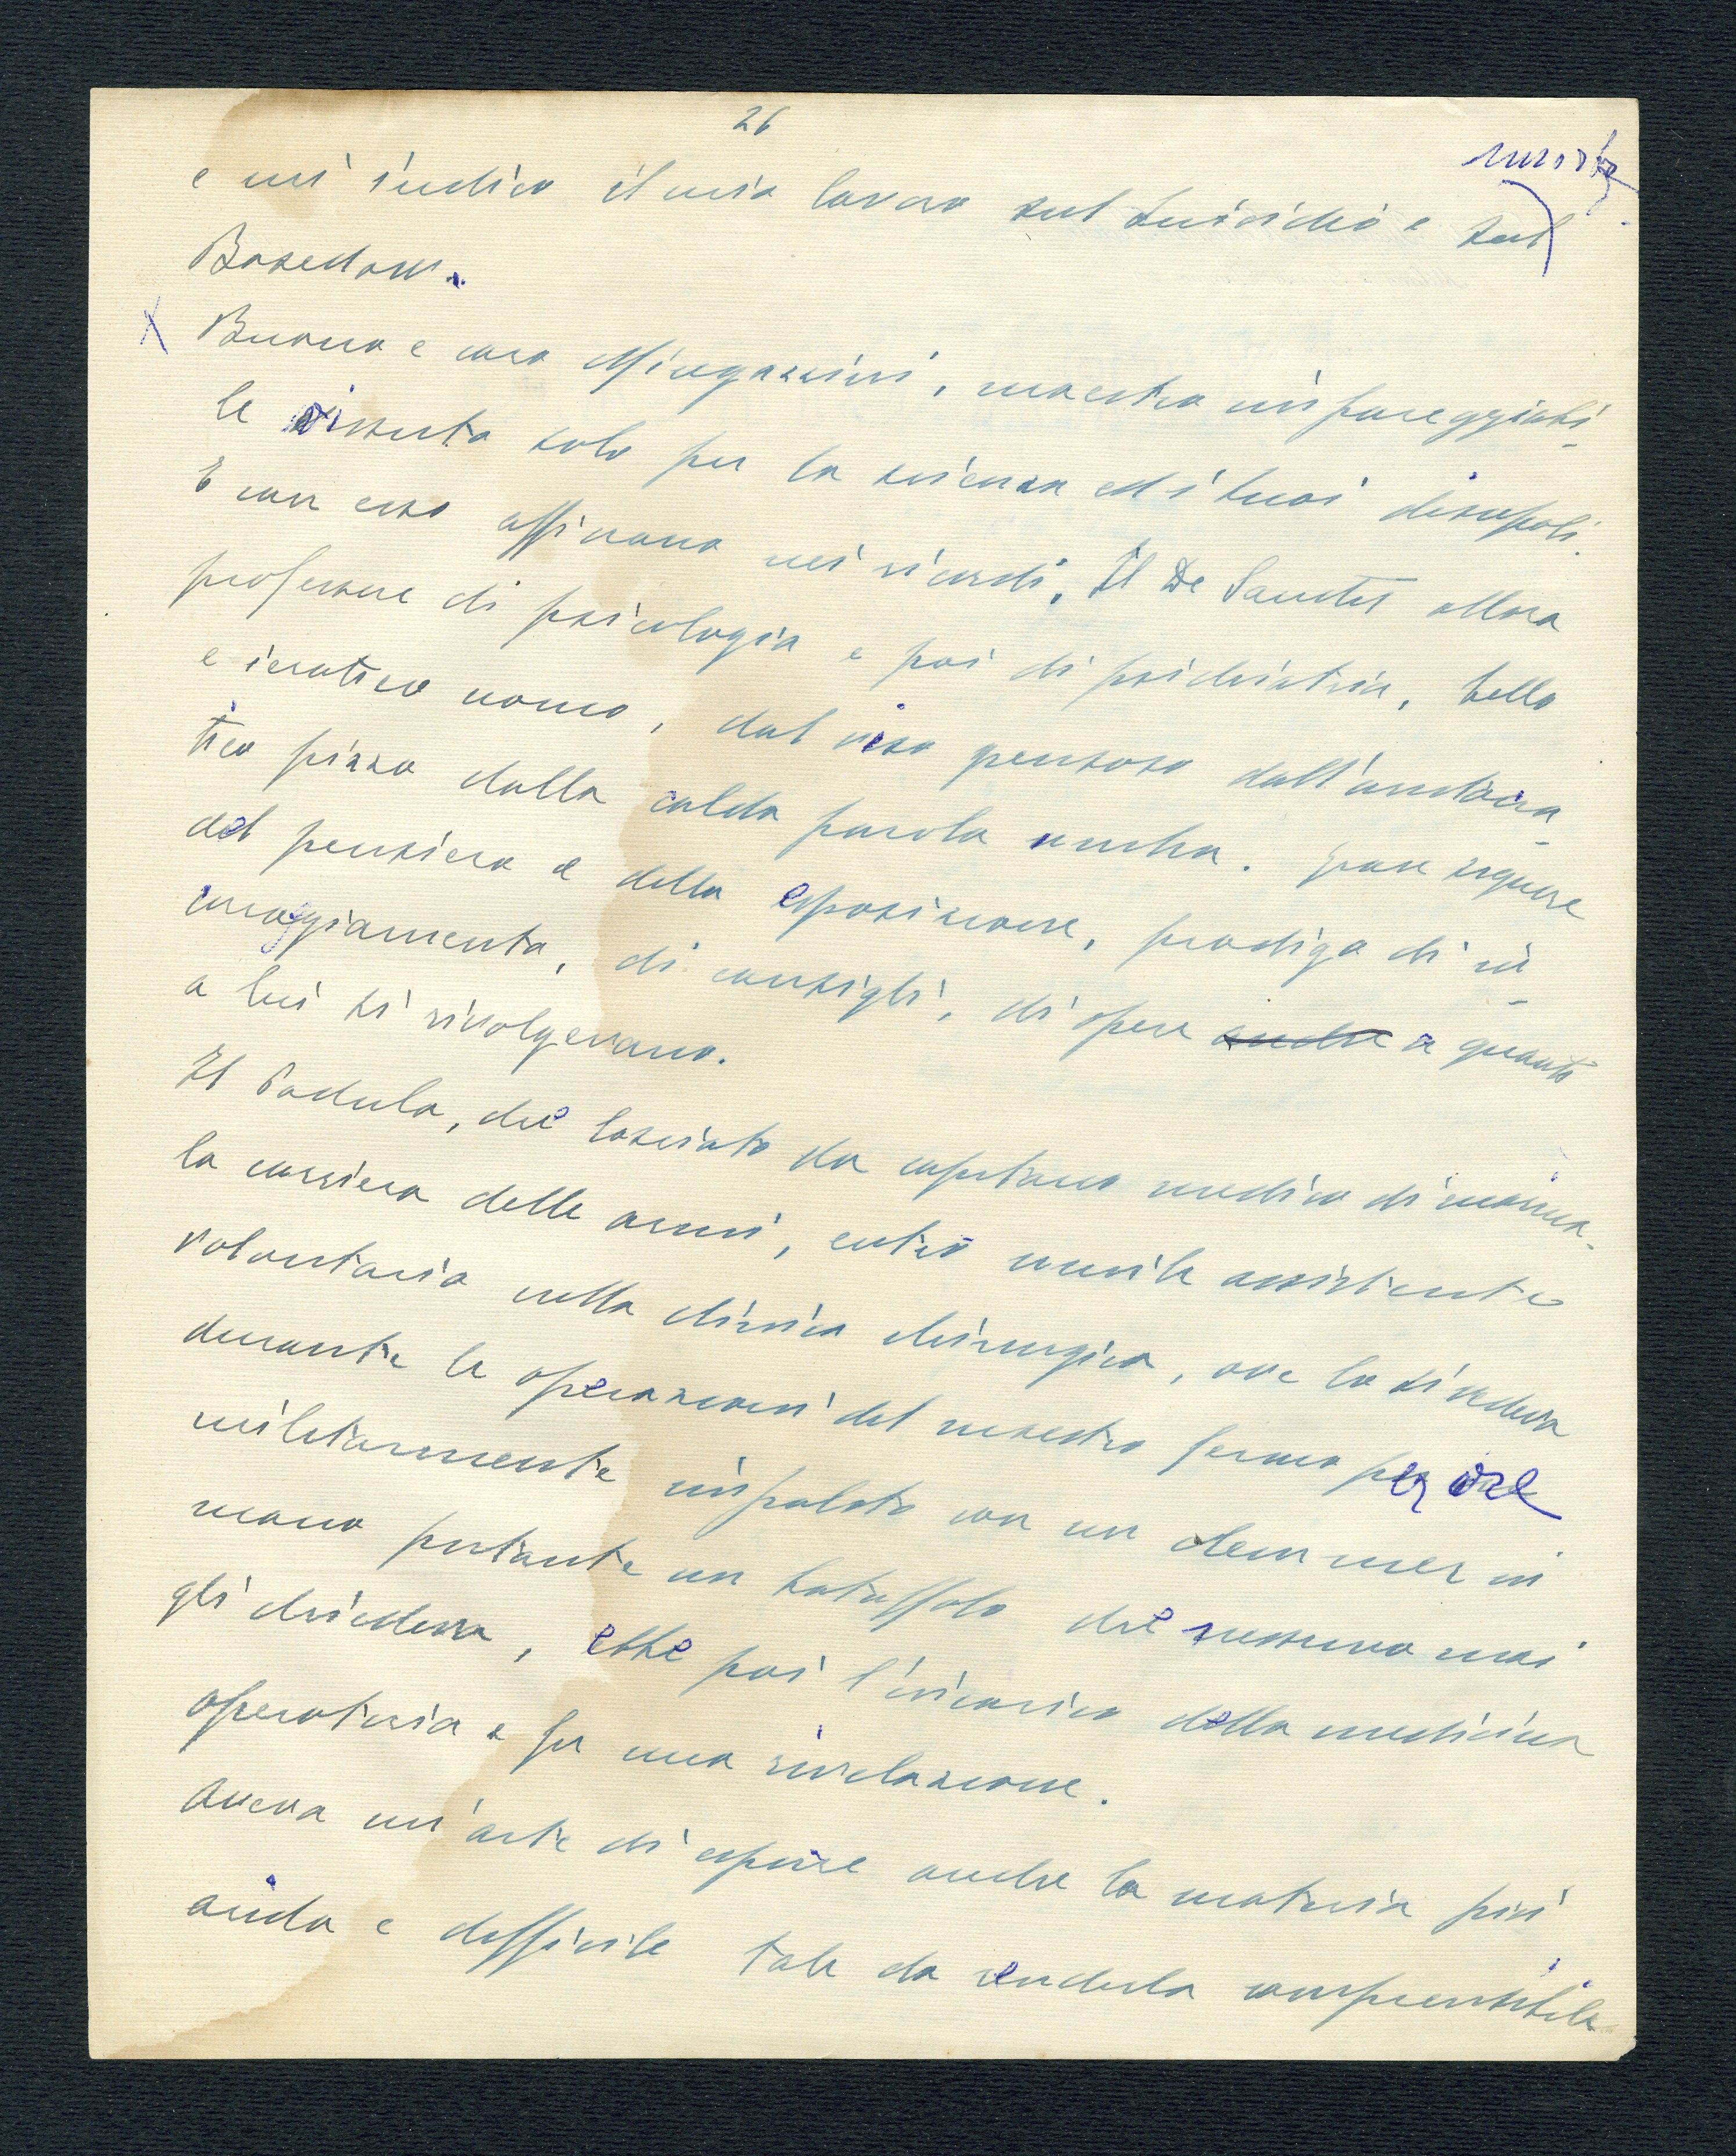 26
e mi indico il mio lavoro sul suicidio e sul
Basedow.
X Buono e caro Mingazzini, maestro impareggiabi-
le vissuto solo per la scienza ed i suoi discepoli.
E con esso affiorano nei ricordi, Il De Sanctis allora
professore di psicologia e poi di psichiatria, bello
e ieratico uomo, dal viso pensoso dall'
tico pizzo dalla calda parola anche. gran signore
del pensiero e della esposizione, prodigo di in-
coraggiamento, di consigli, di opere anche a quanti
a lui si rivolgevano.
Il Padula, che lasciato da capitano medico di marina
la carriera delle armi, entrò umile assistente
volontario nella clinica chirurgica, ove lo si vedeva
durante le operazioni del maestro fermo per ore
militarmente impalato con un clemmer in
mano portante un batuffolo che nessuno mai
gli chiedeva, ebbe poi l'incarico della medicina
operatoria e fu una rivelazione.
Aveva un'arte di esporre anche la materia più
arida e difficile tale da renderla comprensibile